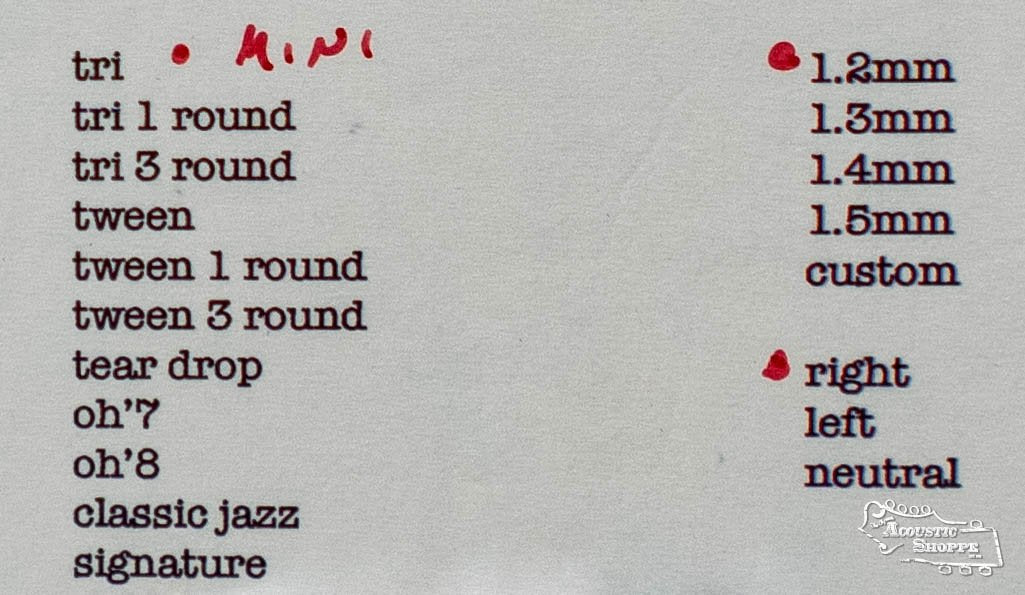 tri • MINI
tri 1 round
tri 3 round
tween
tween 1 round
tween 3 round
tear drop
oh'7
oh'8
classic jazz
signature
• 1.2mm
1.3mm
1.4mm
1.5mm
custom
• right
left
neutral
The
ACOUSTIC
SHOPPE